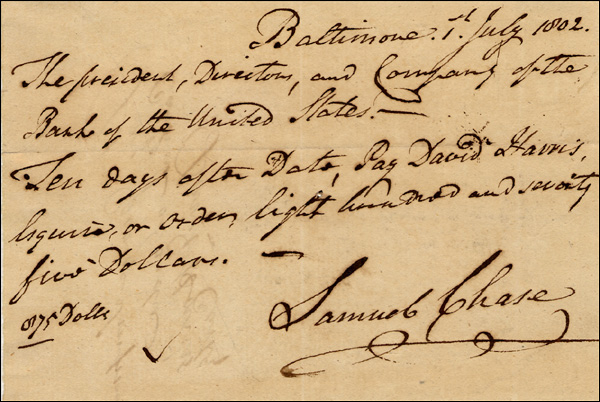 Baltimore. 1st. July 1802.
The president, Directors, and Company of the
Bank of the United States.—
Ten days after Date, Pay David Harris,
Esquire, or order, Eight hundred and seventy
five Dollars. —
875 Dolls
Samuel Chase